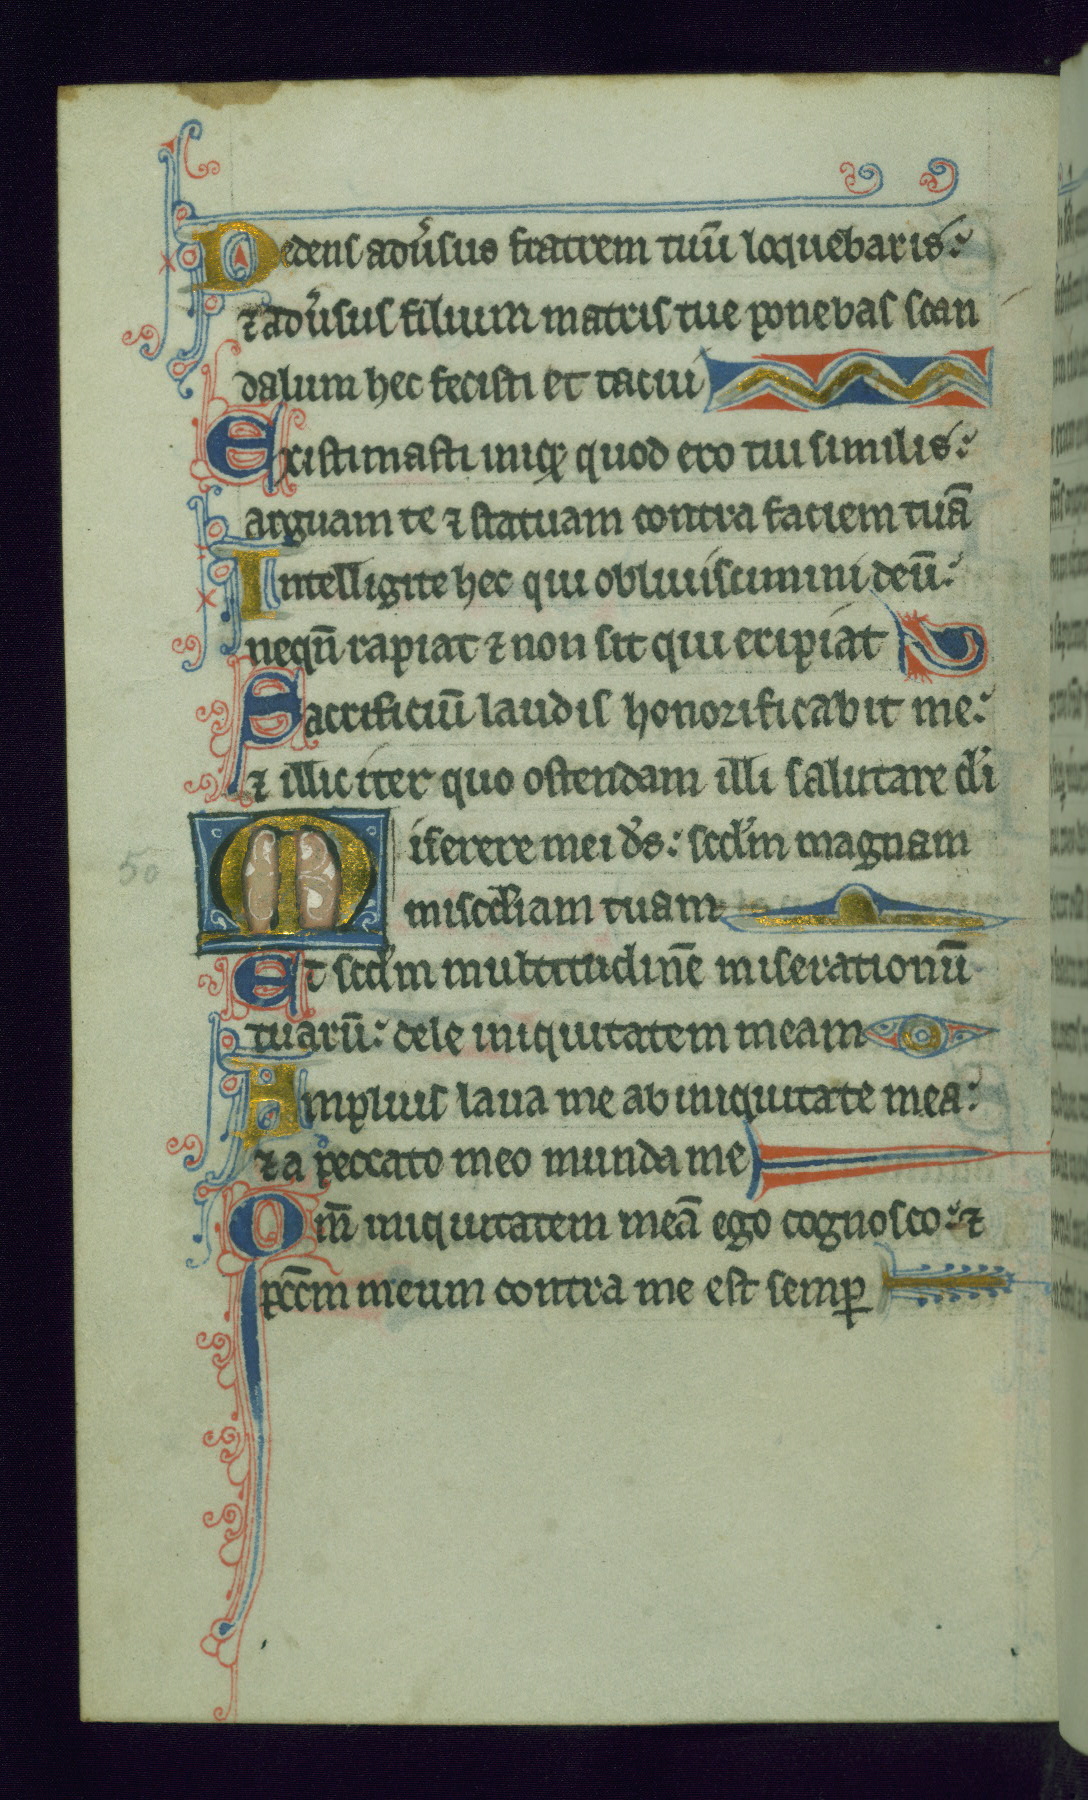 Sedens aduͥsus fratrem tuū loquebaris:
⁊ aduͥsus filium matris tue ponebas scan
dalum hec fecisti et tacui
Existimasti iniqꝫ quod ero tui similis:
arguam te ⁊ statuam contra faciem tuā
Intelligite hec qui obliuiscimini deū:
nequn̄ rapiat ⁊ non sit qui eripiat
Sacrificiū laudis honorificabit me:
⁊ illic iter quo ostendam illi salutare di̾
Miserere mei ds̾: scd̾m magnam
50
miscd̾iam tuam
Et scd̾m multitudinē miserationū
tuarū: dele iniquitatem meam
Amplius laua me ab iniquitate mea:
⁊ a peccato meo munda me
Qm̄ iniquitatem meā ego cognosco: ⁊
pcc̄m meum contra me est semꝑ